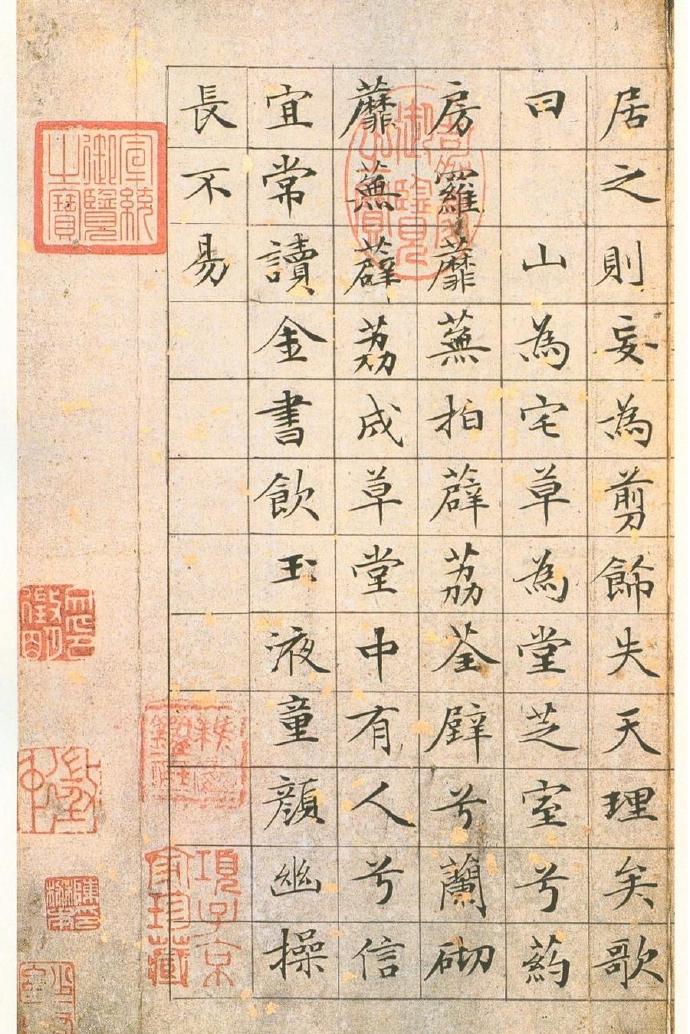 居之則妄為剪飾失天理矣歌
曰山為宅草為堂芝室兮葯
房羅蘼蕪拍薜荔荃壁兮蘭砌
蘼蕪薜荔成草堂中有人兮信
宜常讀金書飲玉液童顏幽操
長不易
嘉慶御覽之寶
宣統御覽之寶
項子京家珍藏